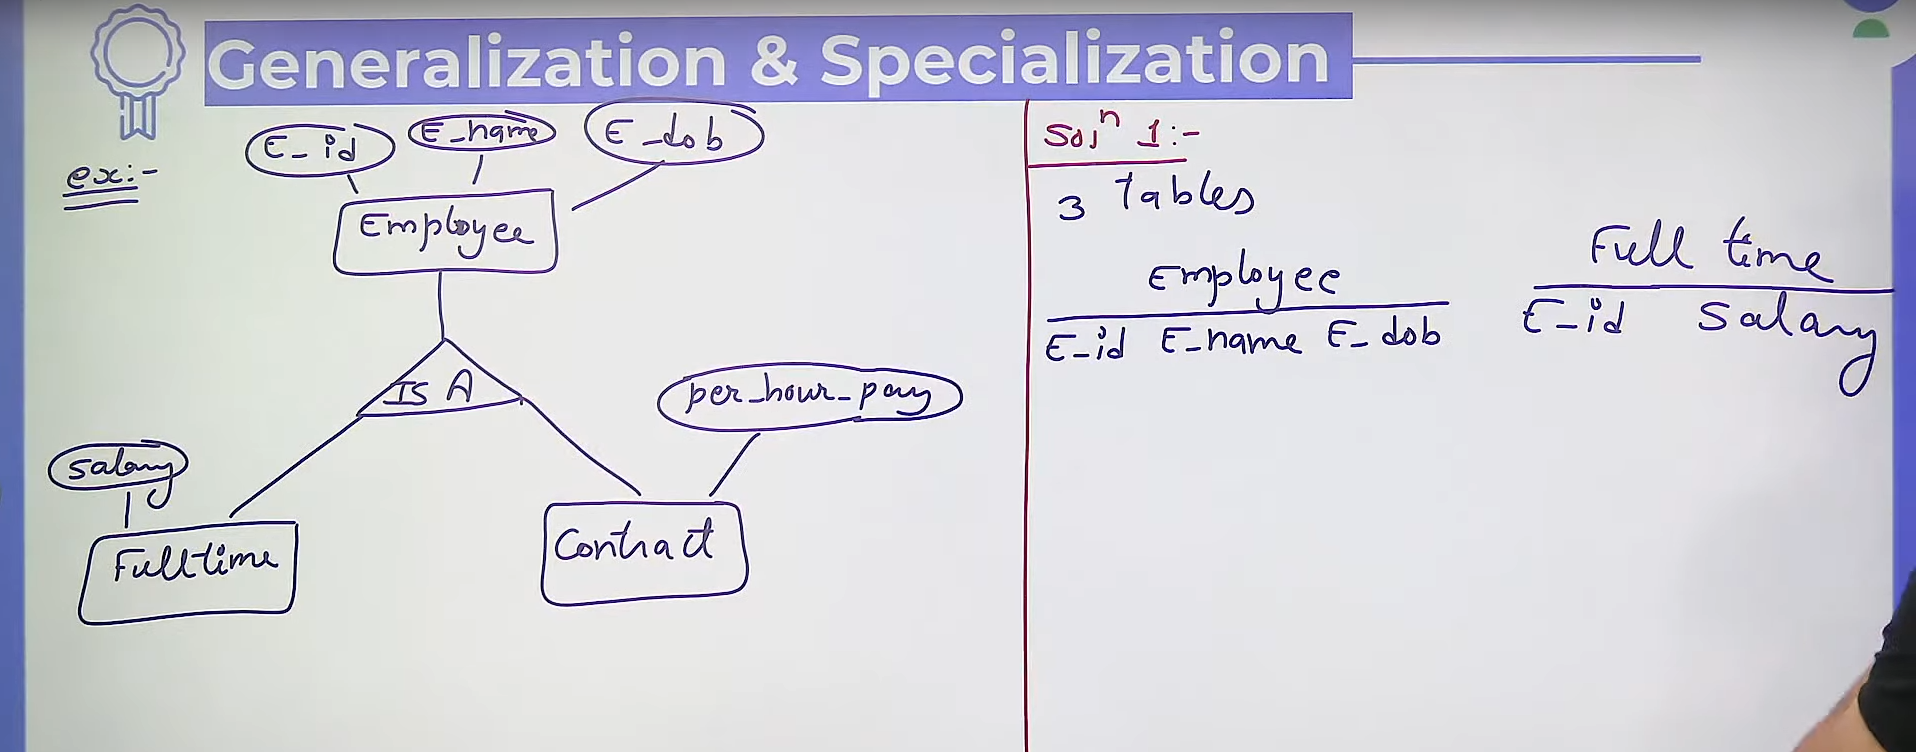 Generalization & Specialization
ex:-
E_id
E_name
E_dob
Employee
IS A
per_hour_pay
salary
Fulltime
Contract
Solⁿ 1:-
3 Tables
Employee
E_id E_name E_dob
Full time
E_id Salary